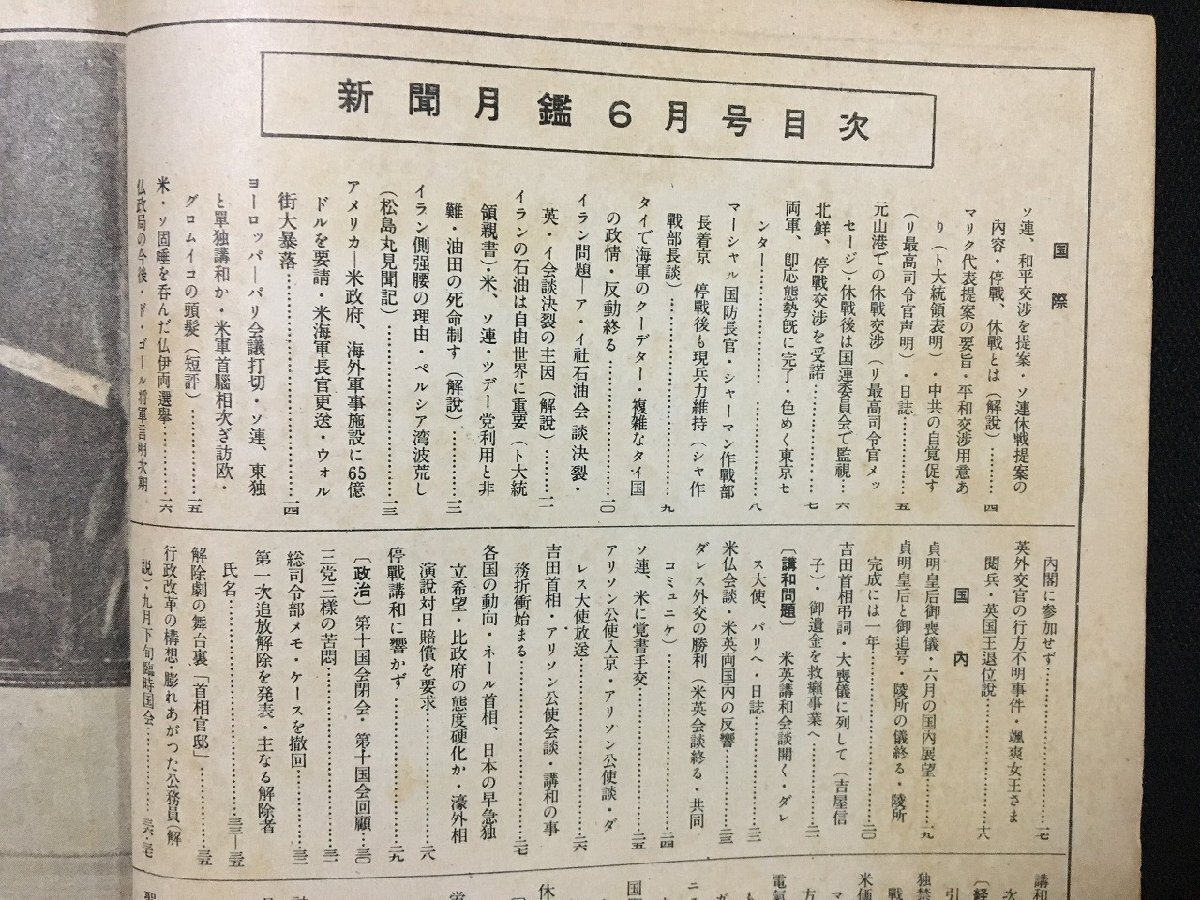 新聞月鑑6月号目次
国際
ソ連、和平交渉を提案・ソ連休戦提案の
内容・停戦、休戦とは（解説）…………四
マリク代表提案の要旨・平和交渉用意あ
り（ト大統領表明）・中共の自覚促す
（リ最高司令官声明）・日誌…………五
元山港での休戦交渉（リ最高司令官メッ
セージ）・休戦後は国連委員会で監視…六
北鮮、停戦交渉を受諾…………七
両軍、即応態勢既に完了・色めく東京セ
ンター…………八
マーシャル国防長官・シャーマン作戦部
長着京　停戦後も現兵力維持（シャ作
戦部長談）…………九
タイで海軍のクーデター・複雑なタイ国
の政情・反動終る…………一〇
イラン問題―ア・イ社石油会談決裂・
英・イ会談決裂の主因（解説）……一一
イランの石油は自由世界に重要（ト大統
領親書）・米、ソ連・ツデー党利用と非
難・油田の死命制す（解説）………一二
イラン側强腰の理由・ペルシア湾波荒し
（松島丸見聞記）…………一三
アメリカ―米政府、海外軍事施設に65億
ドルを要請・米海軍長官更送・ウォル
街大暴落…………一四
ヨーロッパ―パリ会議打切・ソ連、東独
と單独講和か・米軍首腦相次ぎ訪欧・
グロムイコの頭髮（短評）…………一五
米・ソ固唾を呑んだ仏伊両選挙……一六
仏政局の今後・ド・ゴール将軍言明次期
内閣に参加せず…………一七
英外交官の行方不明事件・颯爽女王さま
閲兵・英国王退位説…………一八
国內
貞明皇后御喪儀・六月の国內展望……一九
貞明皇后と御追号・陵所の儀終る・陵所
完成には一年…………二〇
吉田首相弔詞・大喪儀に列して（吉屋信
子）・御遺金を救癩事業へ…………二一
〔講和問題〕　米英講和会談開く・ダレ
ス大使、パリへ・日誌…………二二
米仏会談・米英両国內の反響………二三
ダレス外交の勝利（米英会談終る・共同
コミュニケ）…………二四
ソ連、米に覚書手交…………二五
アリソン公使入京・アリソン公使談・ダ
レス大使放送…………二六
吉田首相・アリソン公使会談・講和の事
務折衝始まる…………二七
各国の動向・ネール首相、日本の早急独
立希望・比政府の態度硬化か・濠外相
演説対日賠償を要求…………二八
停戰講和に響かず…………二九
〔政治〕第十国会閉会・第十国会回顧…三〇
三党三様の苦悶…………三一
総司令部メモ・ケースを撤回………三二
第一次追放解除を発表・主なる解除者
氏名…………三三―三五
解除劇の舞台裏「首相官邸」………三五
行政改革の構想・膨れあがつた公務員（解
説）・九月下旬臨時国会……三六・三七